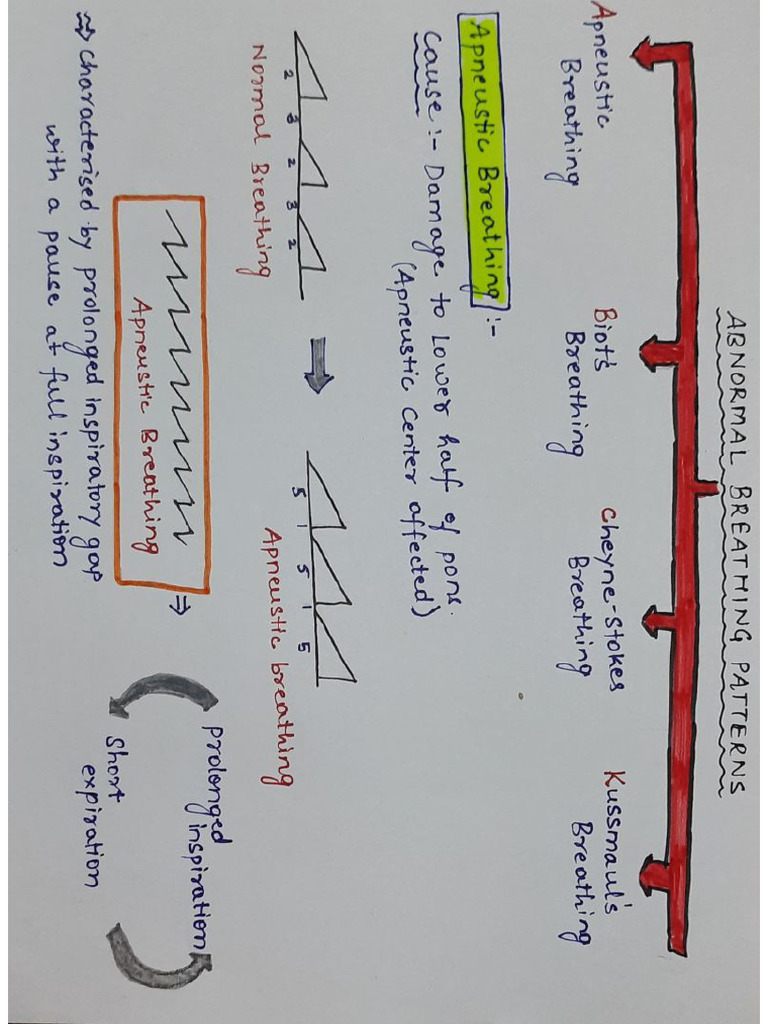 ABNORMAL BREATHING PATTERNS
Apneustic
Breathing
Biot's
Breathing
Cheyne-Stokes
Breathing
Kussmaul's
Breathing
Apneustic Breathing :-
Cause :- Damage to Lower half of pons.
(Apneustic Center affected)
2 3 2 3 2
Normal Breathing
5 1 5 1 5
Apneustic breathing
Apneustic Breathing
⇒
Prolonged
inspiration
Short
expiration
⇝ Characterised by prolonged inspiratory gap
with a pause at full inspiration